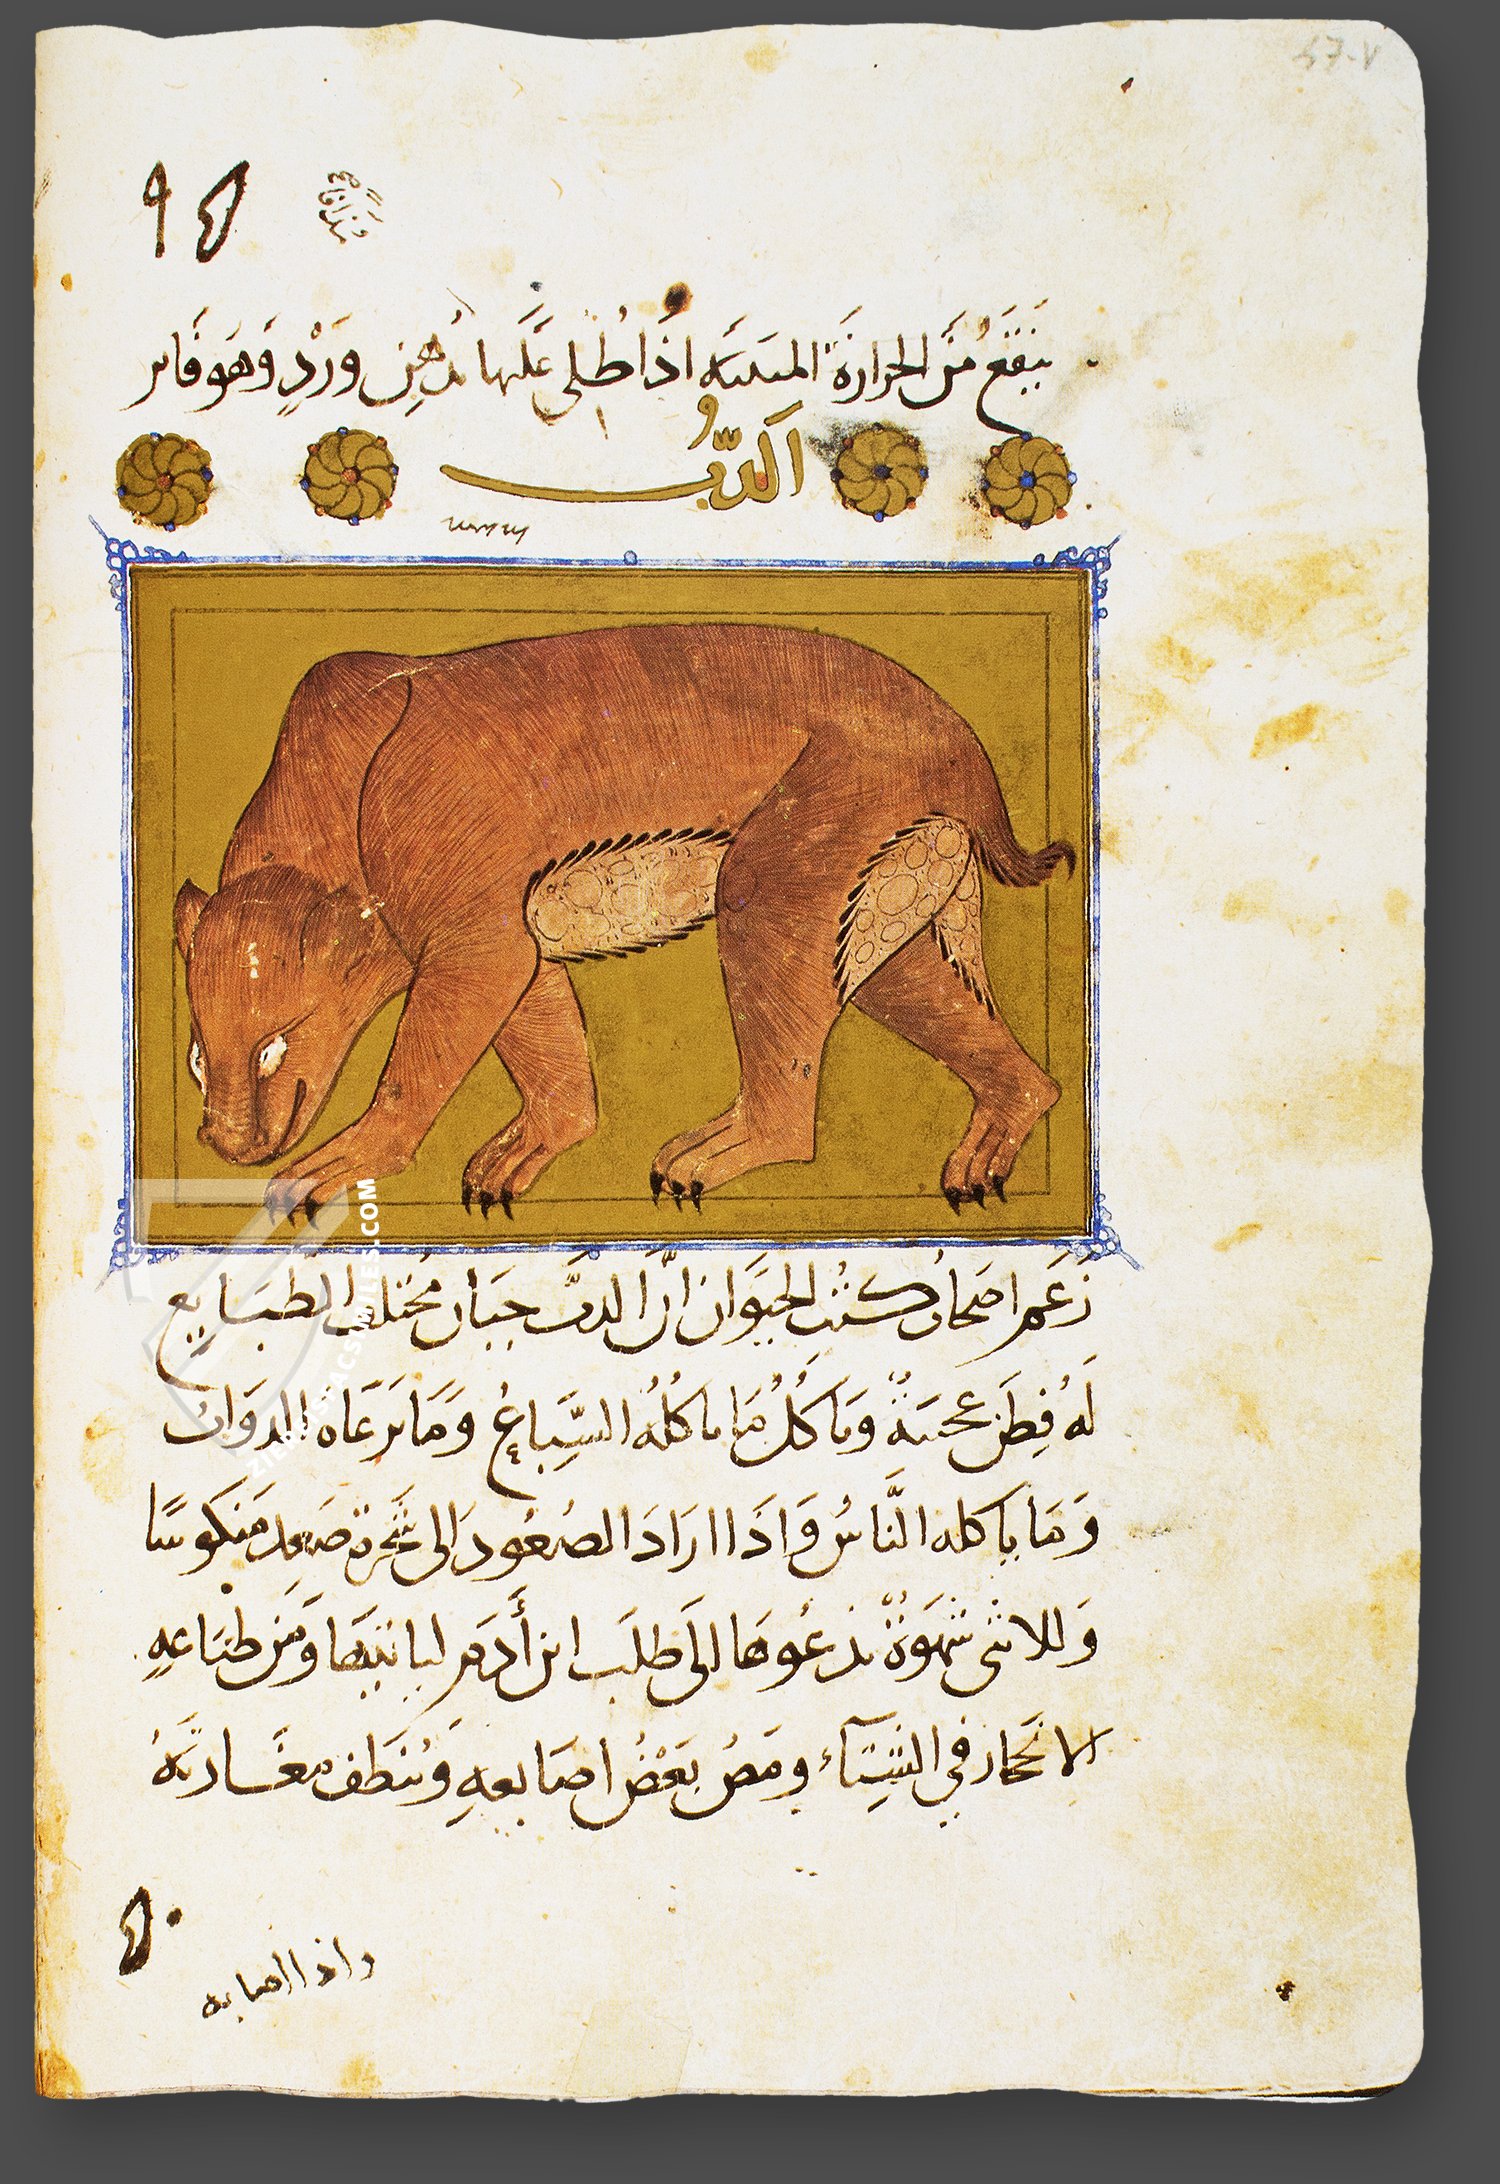 57-v
٩٤
ينفع من الحرارة اذا طلي عليها بدهن ورد وهو فاتر
الدُّبُّ
زَعَم اصحاب كتب الحيَوان انَّ الدبَّ جبَان مُختلف الطّبَايع
لَهُ فِطَن عجيبةٌ وياكُلُ مَا ياكُلُهُ السِّبَاعُ وَمَا يَرعَاه الدوَابّ
وَمَا ياكله النَّاسُ وَاذَا ارَادَ الصُعُود الى شجرة صَعِد مَنكوسًا
وَللانثى شهَوَةٌ تدعُوهَا الَى طلَب ابن أدَم لياتيهَا وَمن طبَاعهِ
الانحجار في الشِّتآء ومَصُ بَعْضُ اصَابعهِ وَ مغَارتَهُ
واذا اصابه
ZIEREIS FACSIMILES.COM